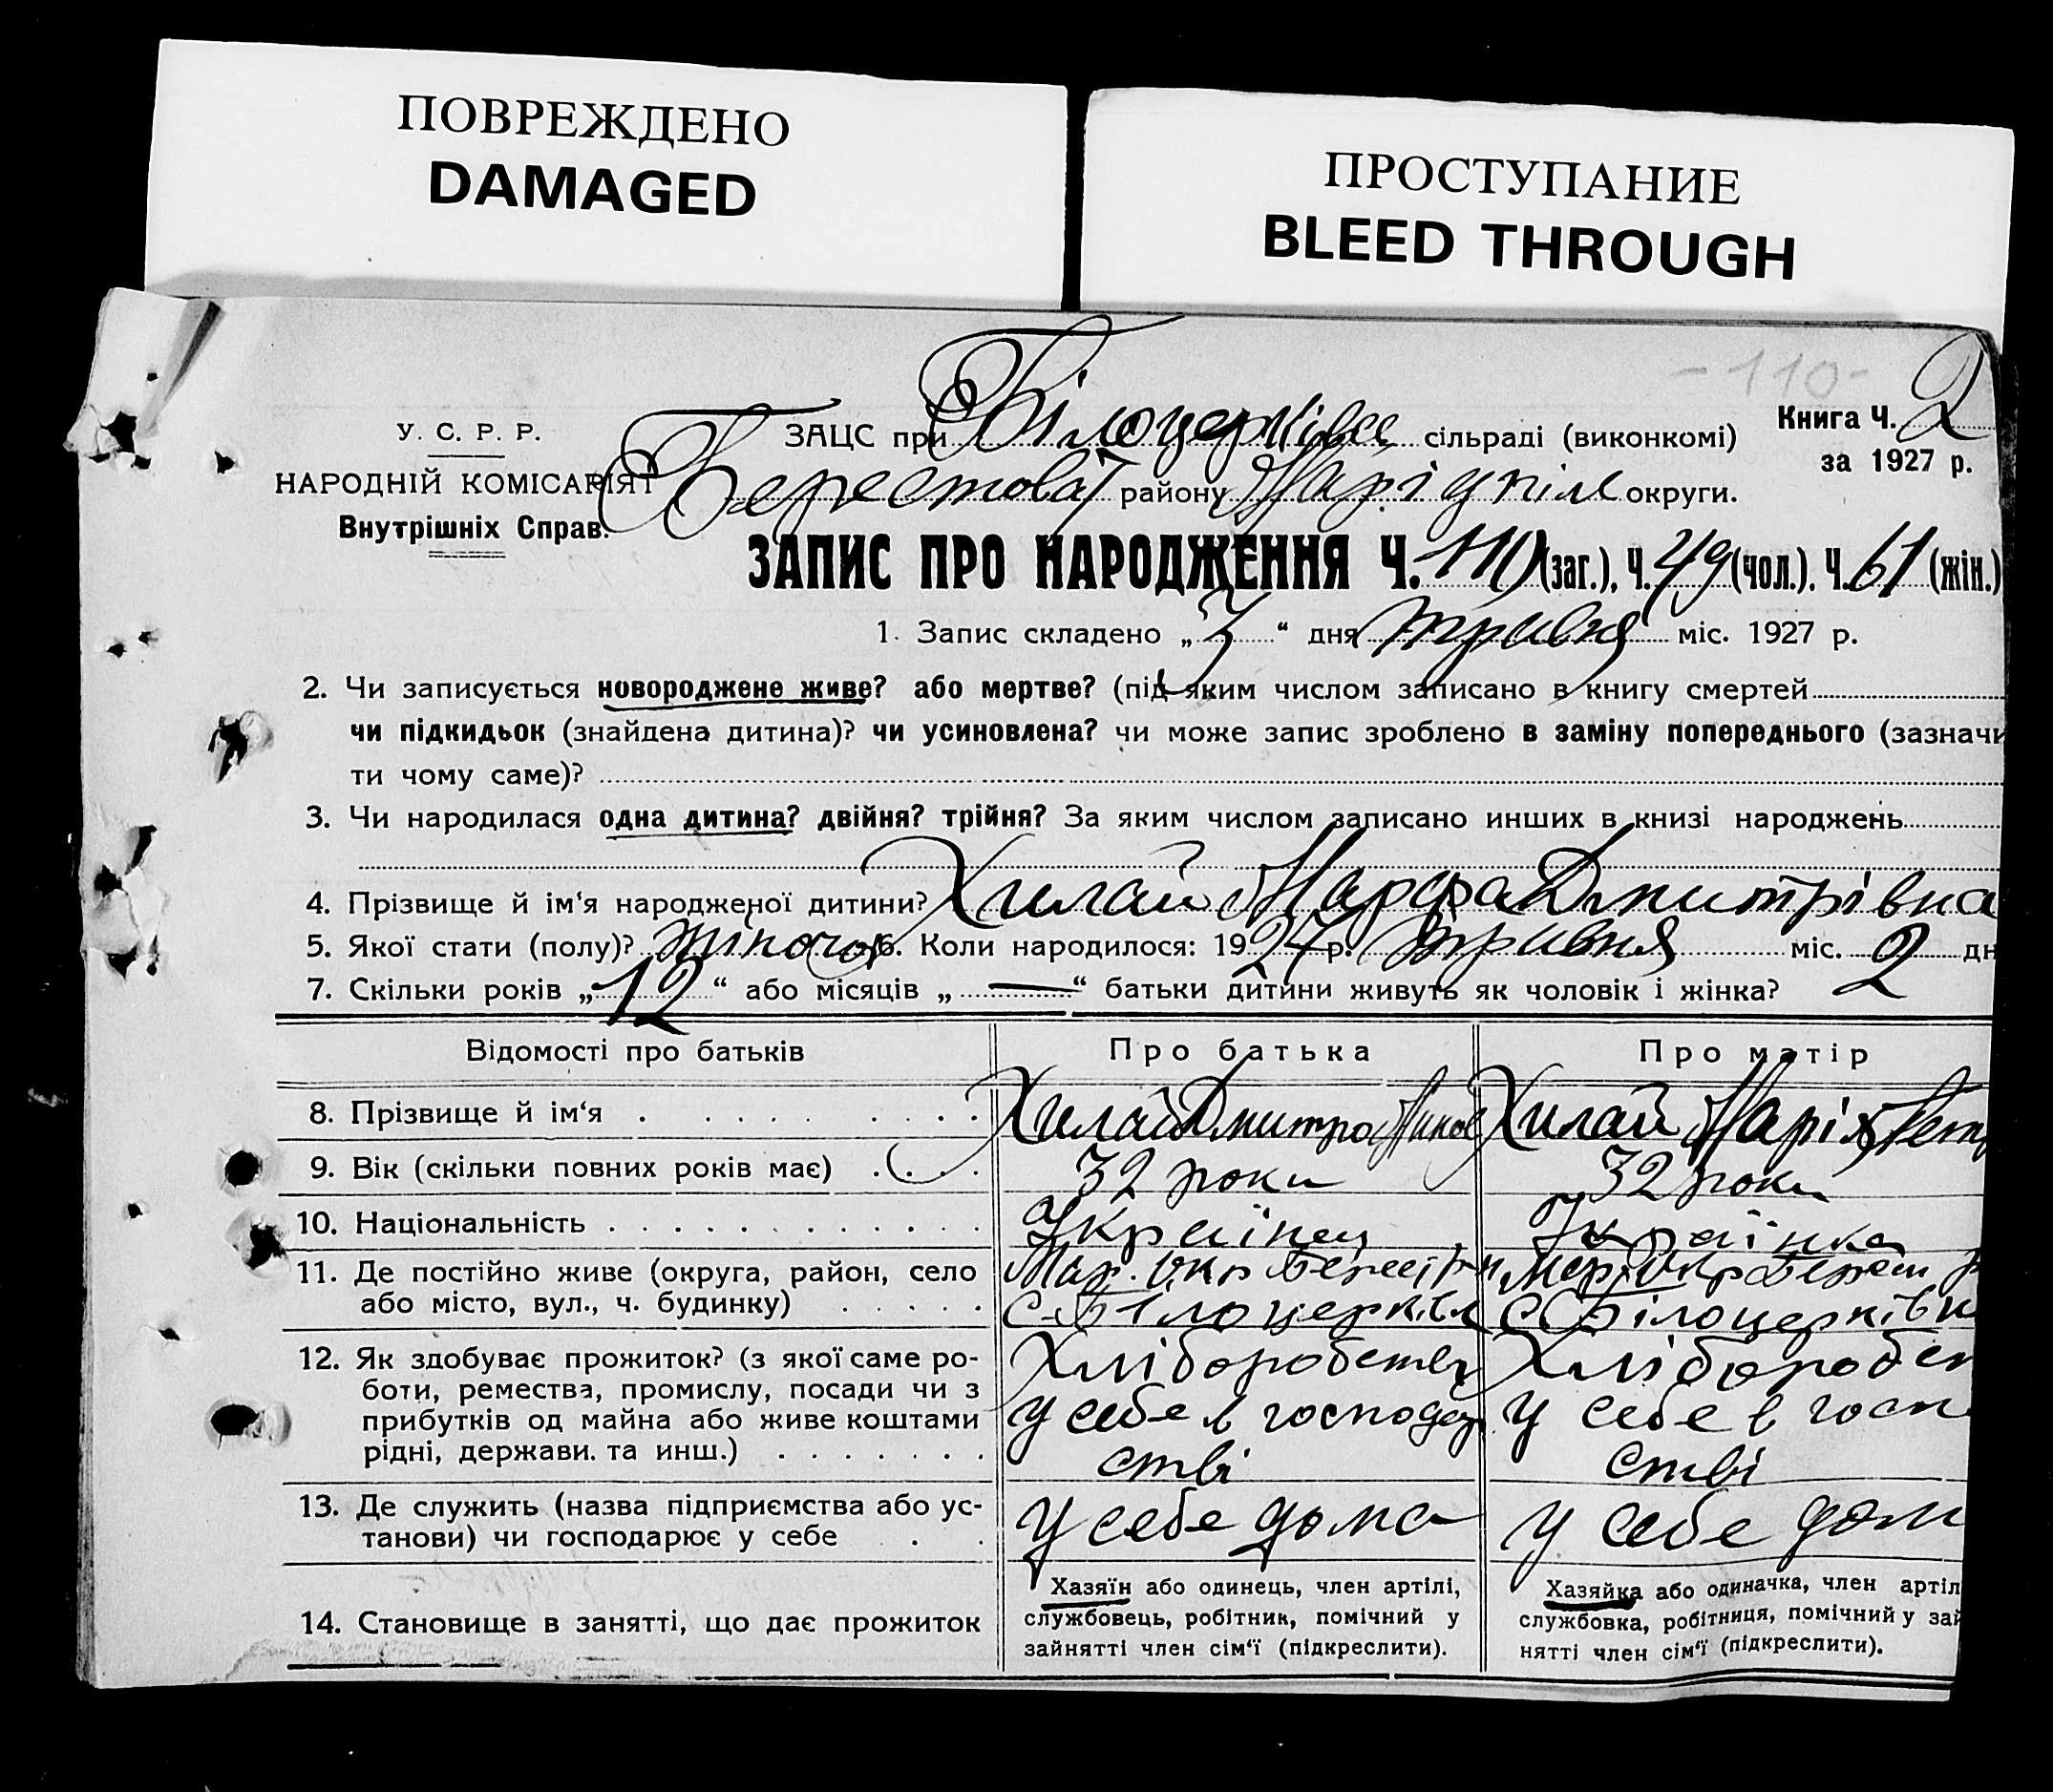 ПОВРЕЖДЕНО
DAMAGED
ПРОСТУПАНИЕ
BLEED THROUGH
-110-
Книга Ч. 2
за 1927 р.
У. С. Р. Р.
НАРОДНІЙ КОМІСАРІЯТ
Внутрішніх Справ.
ЗАЦС при Білоцерківс сільраді (виконкомі)
Берестова району Маріупіл округи.
ЗАПИС ПРО НАРОДЖЕННЯ Ч. 110 (заг.), Ч. 49 (чол.). Ч. 61 (жін.)
1. Запис складено „ 3 “ дня травня міс. 1927 р.
2. Чи записується новороджене живе? або мертве? (під яким числом записано в книгу смертей
чи підкидьок (знайдена дитина)? чи усиновлена? чи може запис зроблено в заміну попереднього (зазначи
ти чому саме)?
3. Чи народилася одна дитина? двійня? трійня? За яким числом записано инших в книзі народжень
4. Прізвище й ім‘я народженої дитини? Хилай Марфа Дмитрівна
5. Якої стати (полу)? жіночої 6. Коли народилося: 1927 р. травня міс. 2 дн
7. Скільки років „ 12 “ або місяців „ — “ батьки дитини живуть як чоловік і жінка? 2
Відомості про батьків
Про батька
Про матір
8. Прізвище й ім‘я
Хилай Дмитро
Хилай Марія Петр
9. Вік (скільки повних років має)
32 роки
32 роки
10. Національність
Українец
Українка
11. Де постійно живе (округа, район, село
або місто, вул., ч. будинку)
Мар. Окр Берест р-н
с. Білоцерківк
Мар. Окр Берест р
с Білоцерківк
12. Як здобуває прожиток? (з якої саме ро-
боти, ремества, промислу, посади чи з
прибутків од майна або живе коштами
рідні, держави. та инш.)
Хліборобств
у себе в господар
стві
Хліборобст
у себе в госп
стві
13. Де служить (назва підприємства або ус-
танови) чи господарює у себе
у себе дома
у себе дом
14. Становище в занятті, що дає прожиток
Хазяїн або одинець, член артілі,
службовець, робітник, помічний у
зайнятті член сім‘ї (підкреслити).
Хазяйка або одиначка, член артіл
службовка, робітниця, помічний у зай
нятті член сім‘ї (підкреслити).